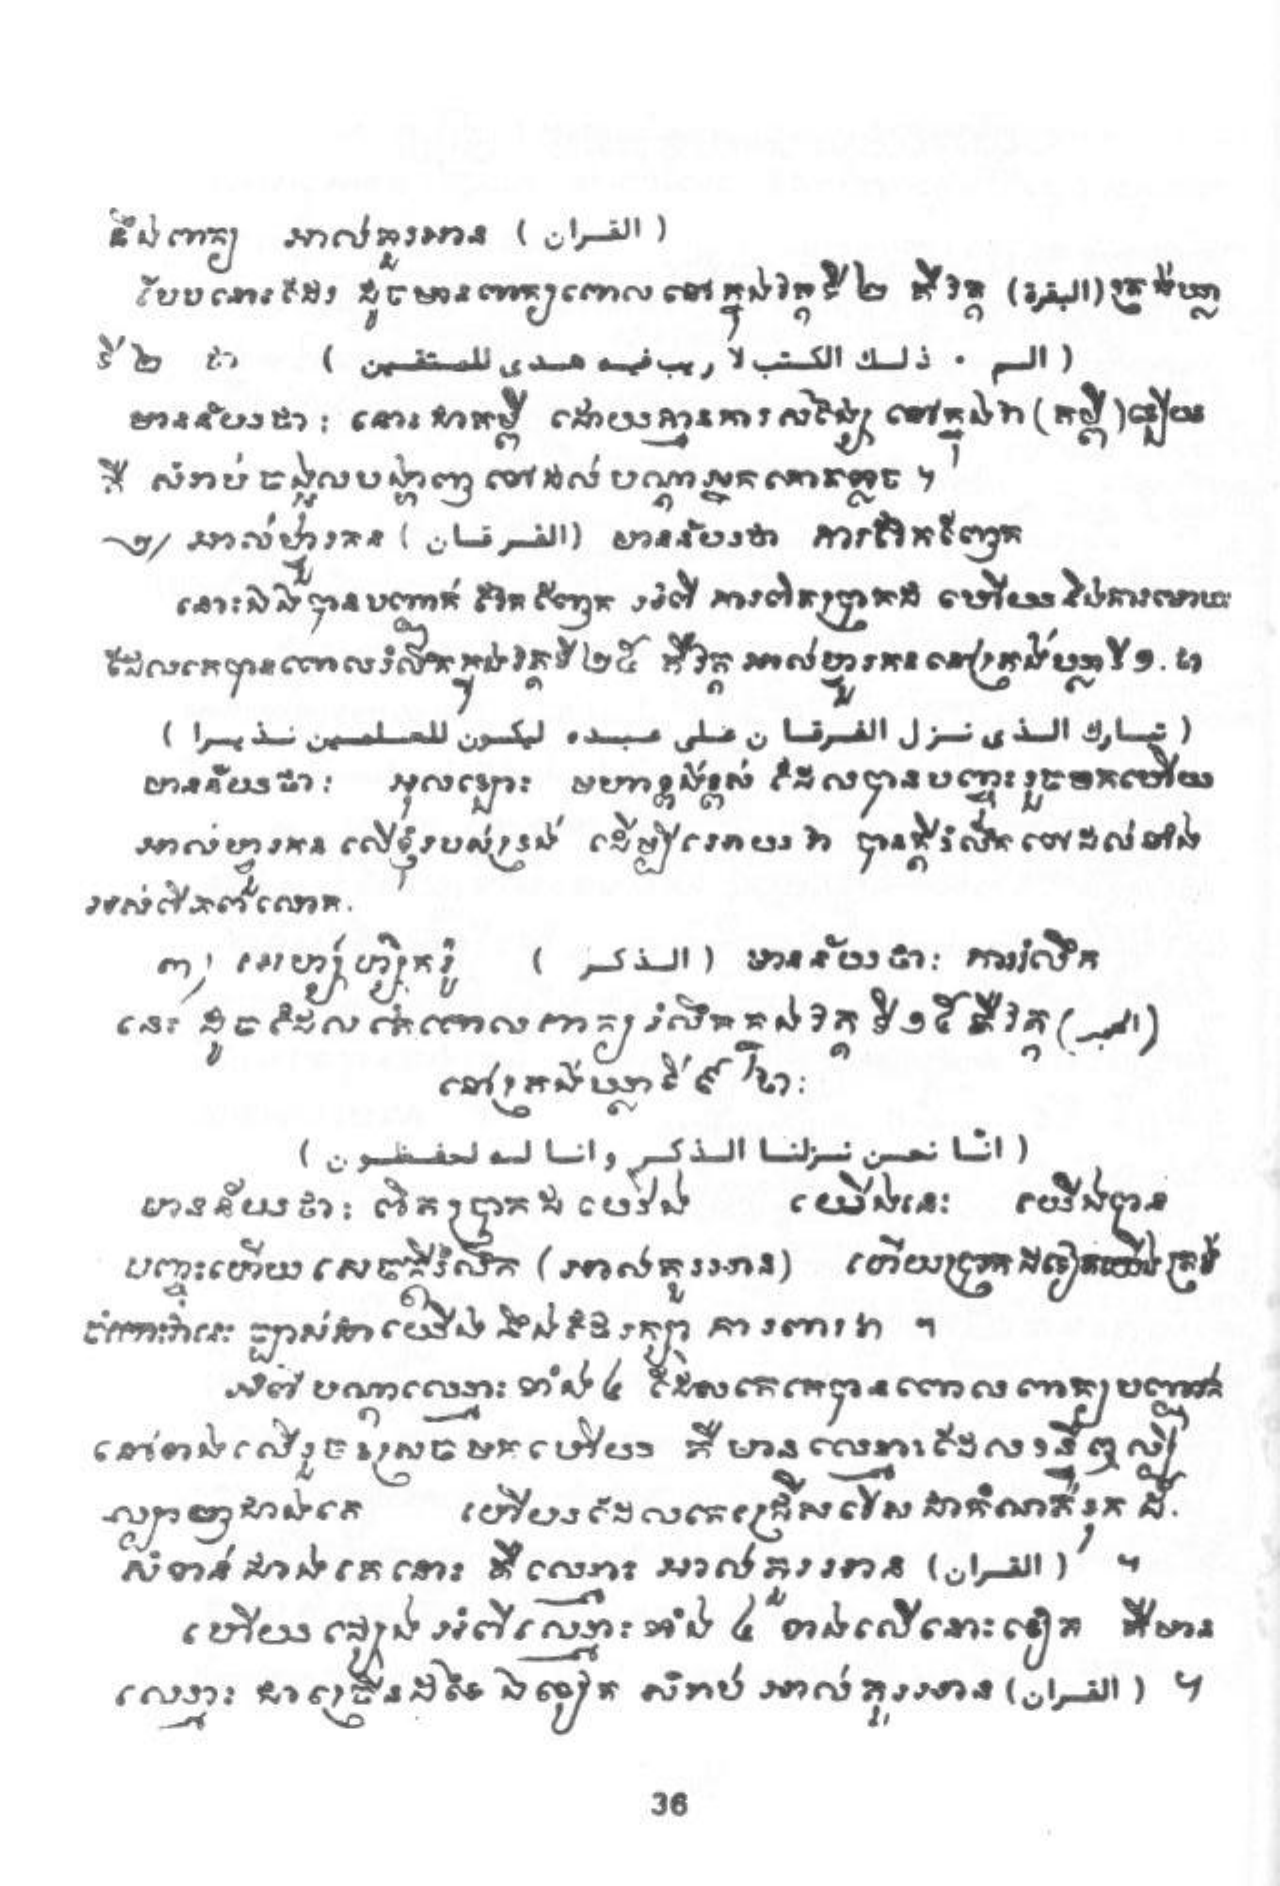 នឹងពាក្យ អាល់គួរអាន ( القران )
បែបនោះដែរ ដូចមានពាក្យពោលនៅក្នុងវគ្គទី ២ គឺវគ្គ (البقرة) ត្រង់ឃ្លា
ទី ២ ថា ( الم ٠ ذلك الكتب لا ريب فيه هدى للمتقين )
មានន័យថា : នោះជាគម្ពី ដោយគ្មានការសង្ស័យ នៅក្នុងវា (គម្ពី) ឡើយ
គឺ សំរាប់ចង្អុលបង្ហាញ ទៅដល់បណ្តាអ្នកកោតខ្លាច ។
២/ អាល់ហ្វួរកន ( الفرقان ) មានន័យថា ការវែកញែក
នោះឯងបានបញ្ជាក់ វែកញែក អំពី ការពិតប្រាកដ ហើយនិងការមោឃៈ
ដែលគេបានពោលរំលឹកក្នុងវគ្គទី ២៥ គឺវគ្គ អាល់ហ្វួរកន នៅត្រង់ឃ្លាទី ១. ថា
( تبارك الذى نزل الفرقان على عبده ليكون للعلمين نذيرا )
មានន័យថា : អុលឡោះ មហាខ្ពង់ខ្ពស់ ដែលបានបញ្ចុះរួចមកហើយ
អាល់ហ្វួរកន លើខ្ញុំរបស់ទ្រង់ ដើម្បីអោយ វា បានក្តីរំលឹក ទៅដល់ទាំង
អស់ពិភពលោក.
៣/ ( الذكر ) មានន័យថា: ការរំលឹក
នេះ ដូចដែល ពោលពាក្យរំលឹកក្នុងវគ្គ ទី ១៥ គឺវគ្គ (الحجر)
នៅត្រង់ឃ្លាទី ៩ ថា:
( انّا نحن نزلنا الذكر وانا له لحفظون )
មានន័យថា : ពិតប្រាកដ យើងនេះ យើងបាន
បញ្ចុះហើយ សេចក្តីរំលឹក ( អាល់គួរអាន ) ហើយប្រាកដទៀតយើង
ចំពោះវានេះ ច្បាស់ជាយើង នឹងថែរក្សា ការពារ វា ។
អំពី បណ្តាឈ្មោះ ទាំង ៤ ដែលគេបានពោល ពាក្យបញ្ជាក់
នៅខាងលើរួចស្រេចមកហើយ គឺ មានឈ្មោះដែល ល្បី
ល្បាញជាងគេ ហើយដែលគេជ្រើសរើស ដ៏.
សំខាន់ ជាងគេនោះ គឺឈ្មោះ អាល់គួរអាន ( القران ) ។
ហើយ ក្រៅ អំពីឈ្មោះ ទាំង ៤ ខាងលើនោះទៀត គឺមាន
ឈ្មោះ ជាច្រើនដទៃ ឯទៀត សំរាប់ អាល់គួរអាន ( القران ) ។
36